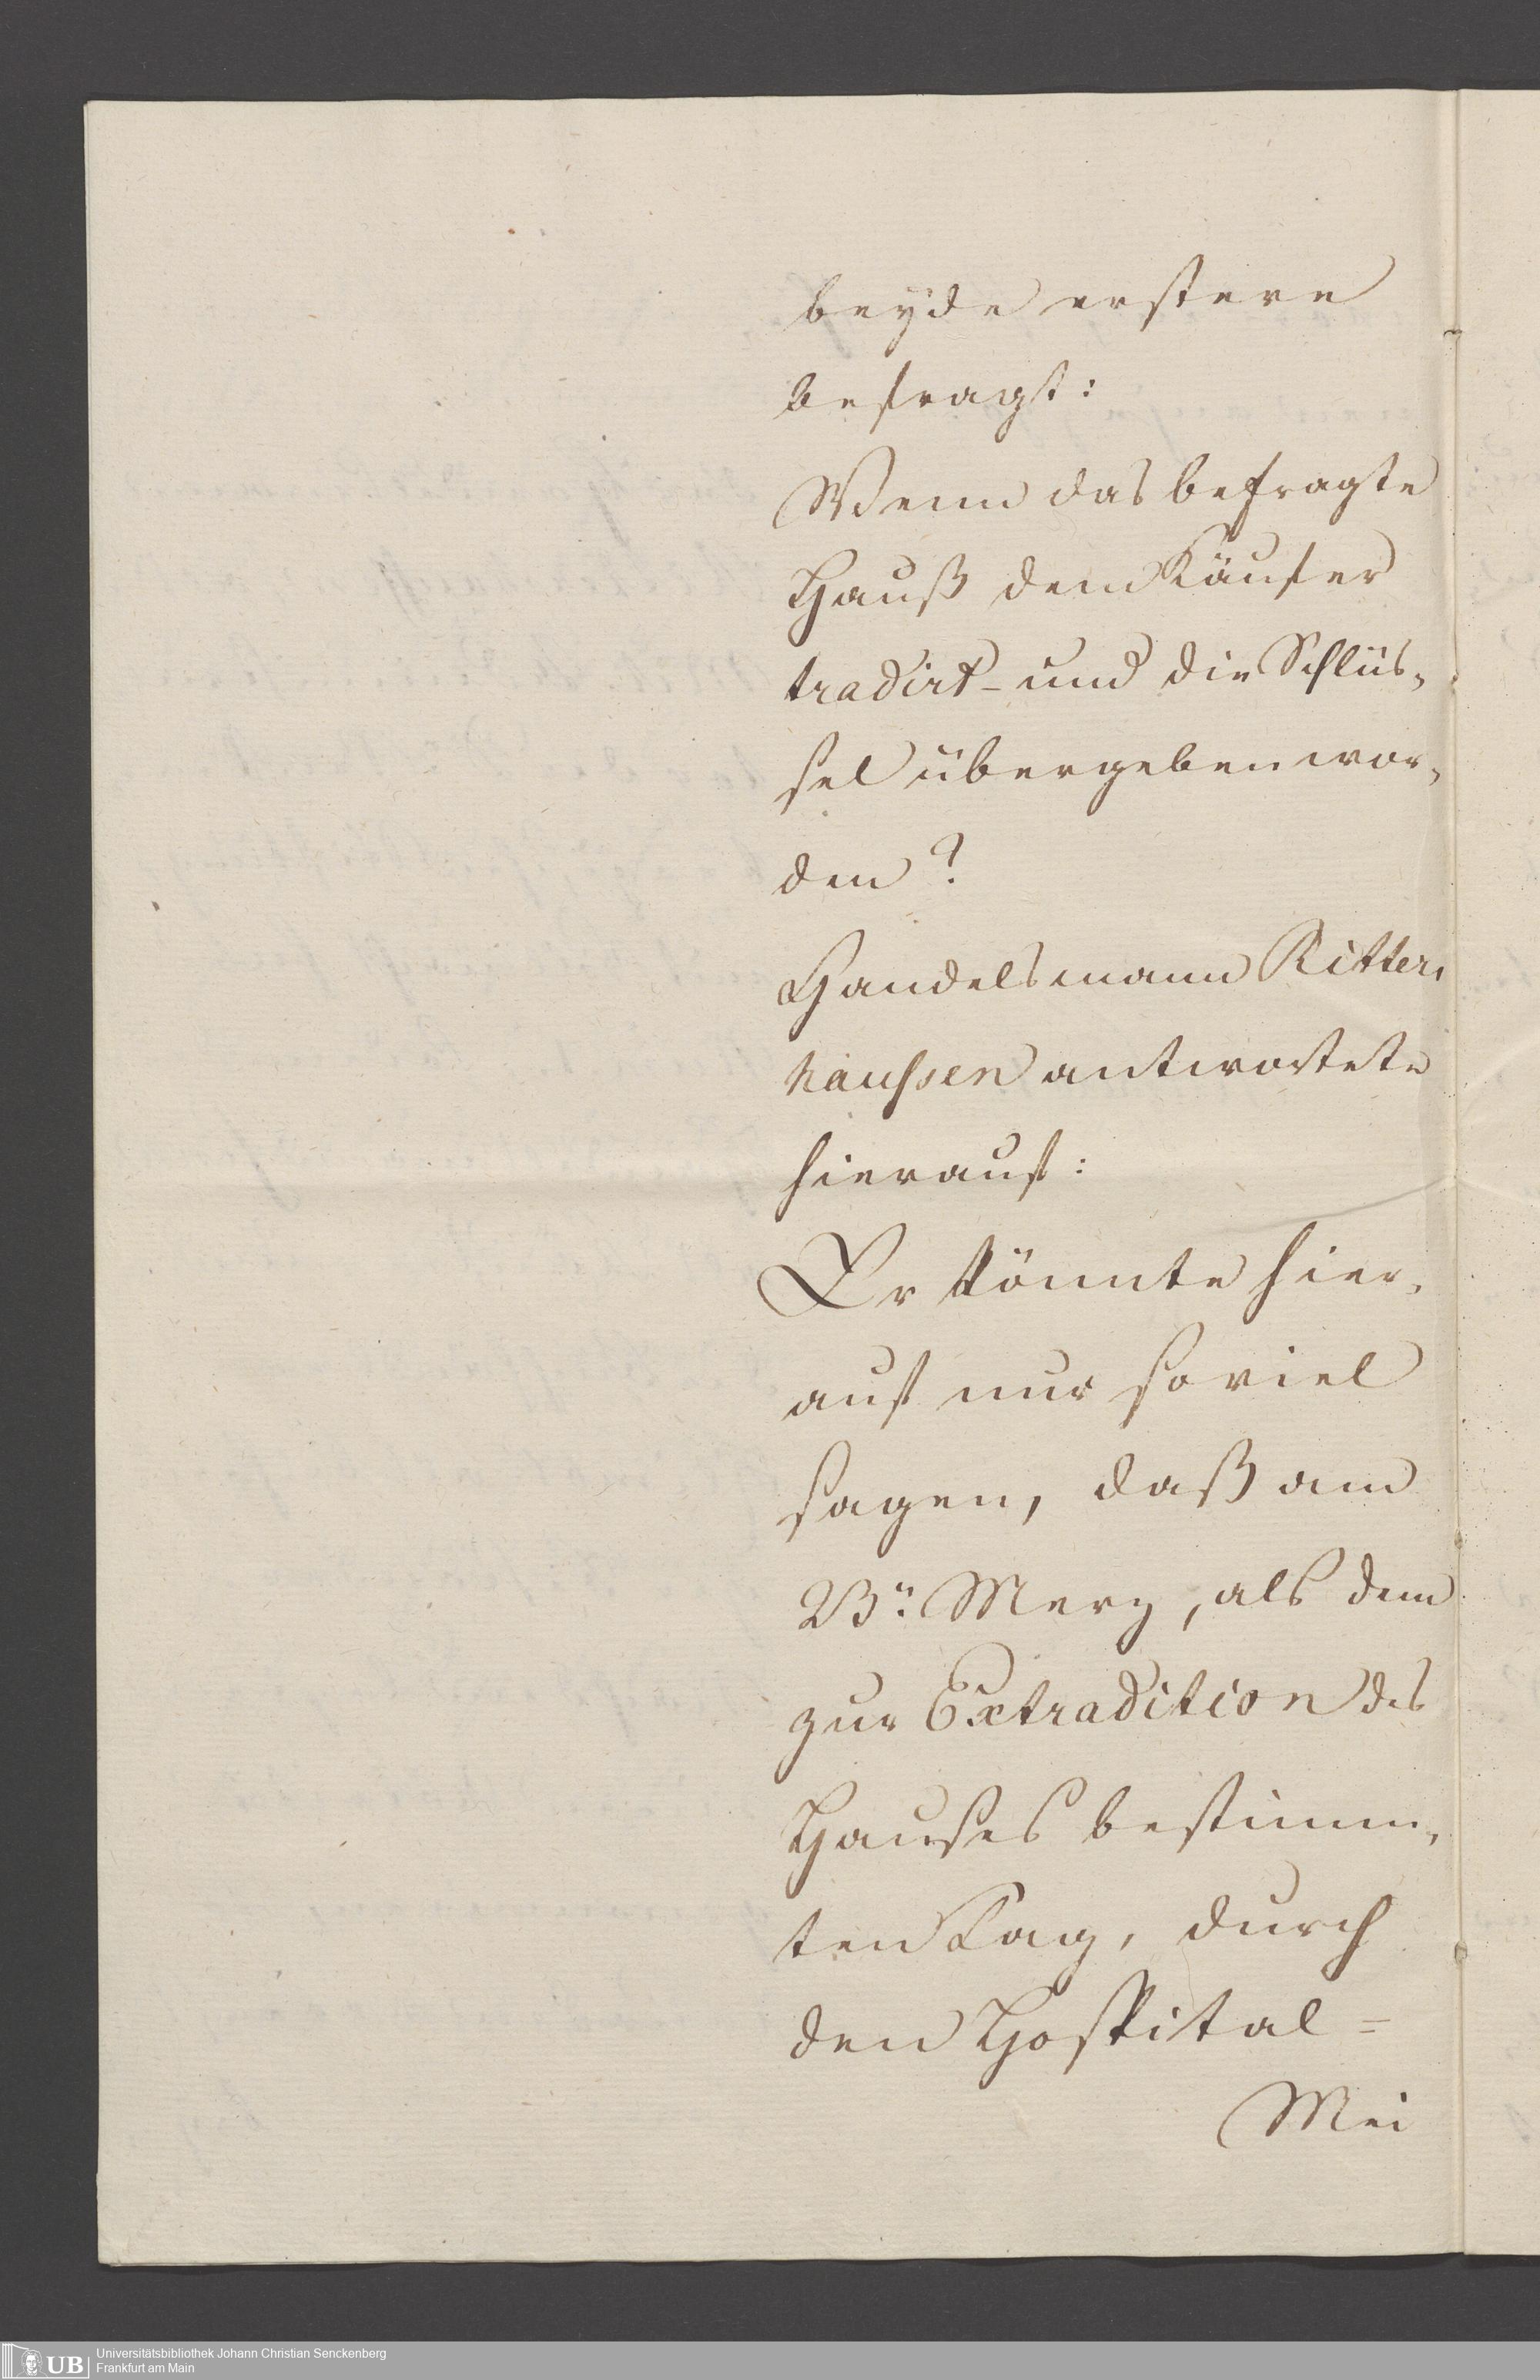 beÿde erstere
befragt:
Wenn das befragte
Hauß dem Käufer
tradirt- und die Schlüs-
sel übergeben wor-
den?
Handelsmann Ritters
haussen antwortete
hierauf:
Er könnte hier-
auf nur soviel
sagen, daß am
23n: Merz, als dem
zur Extradition des
Hauses bestimm-
ten Tag, durch
den Hospital=
Mei
UB
Universitätsbibliothek Johann Christian Senckenberg
Frankfurt am Main